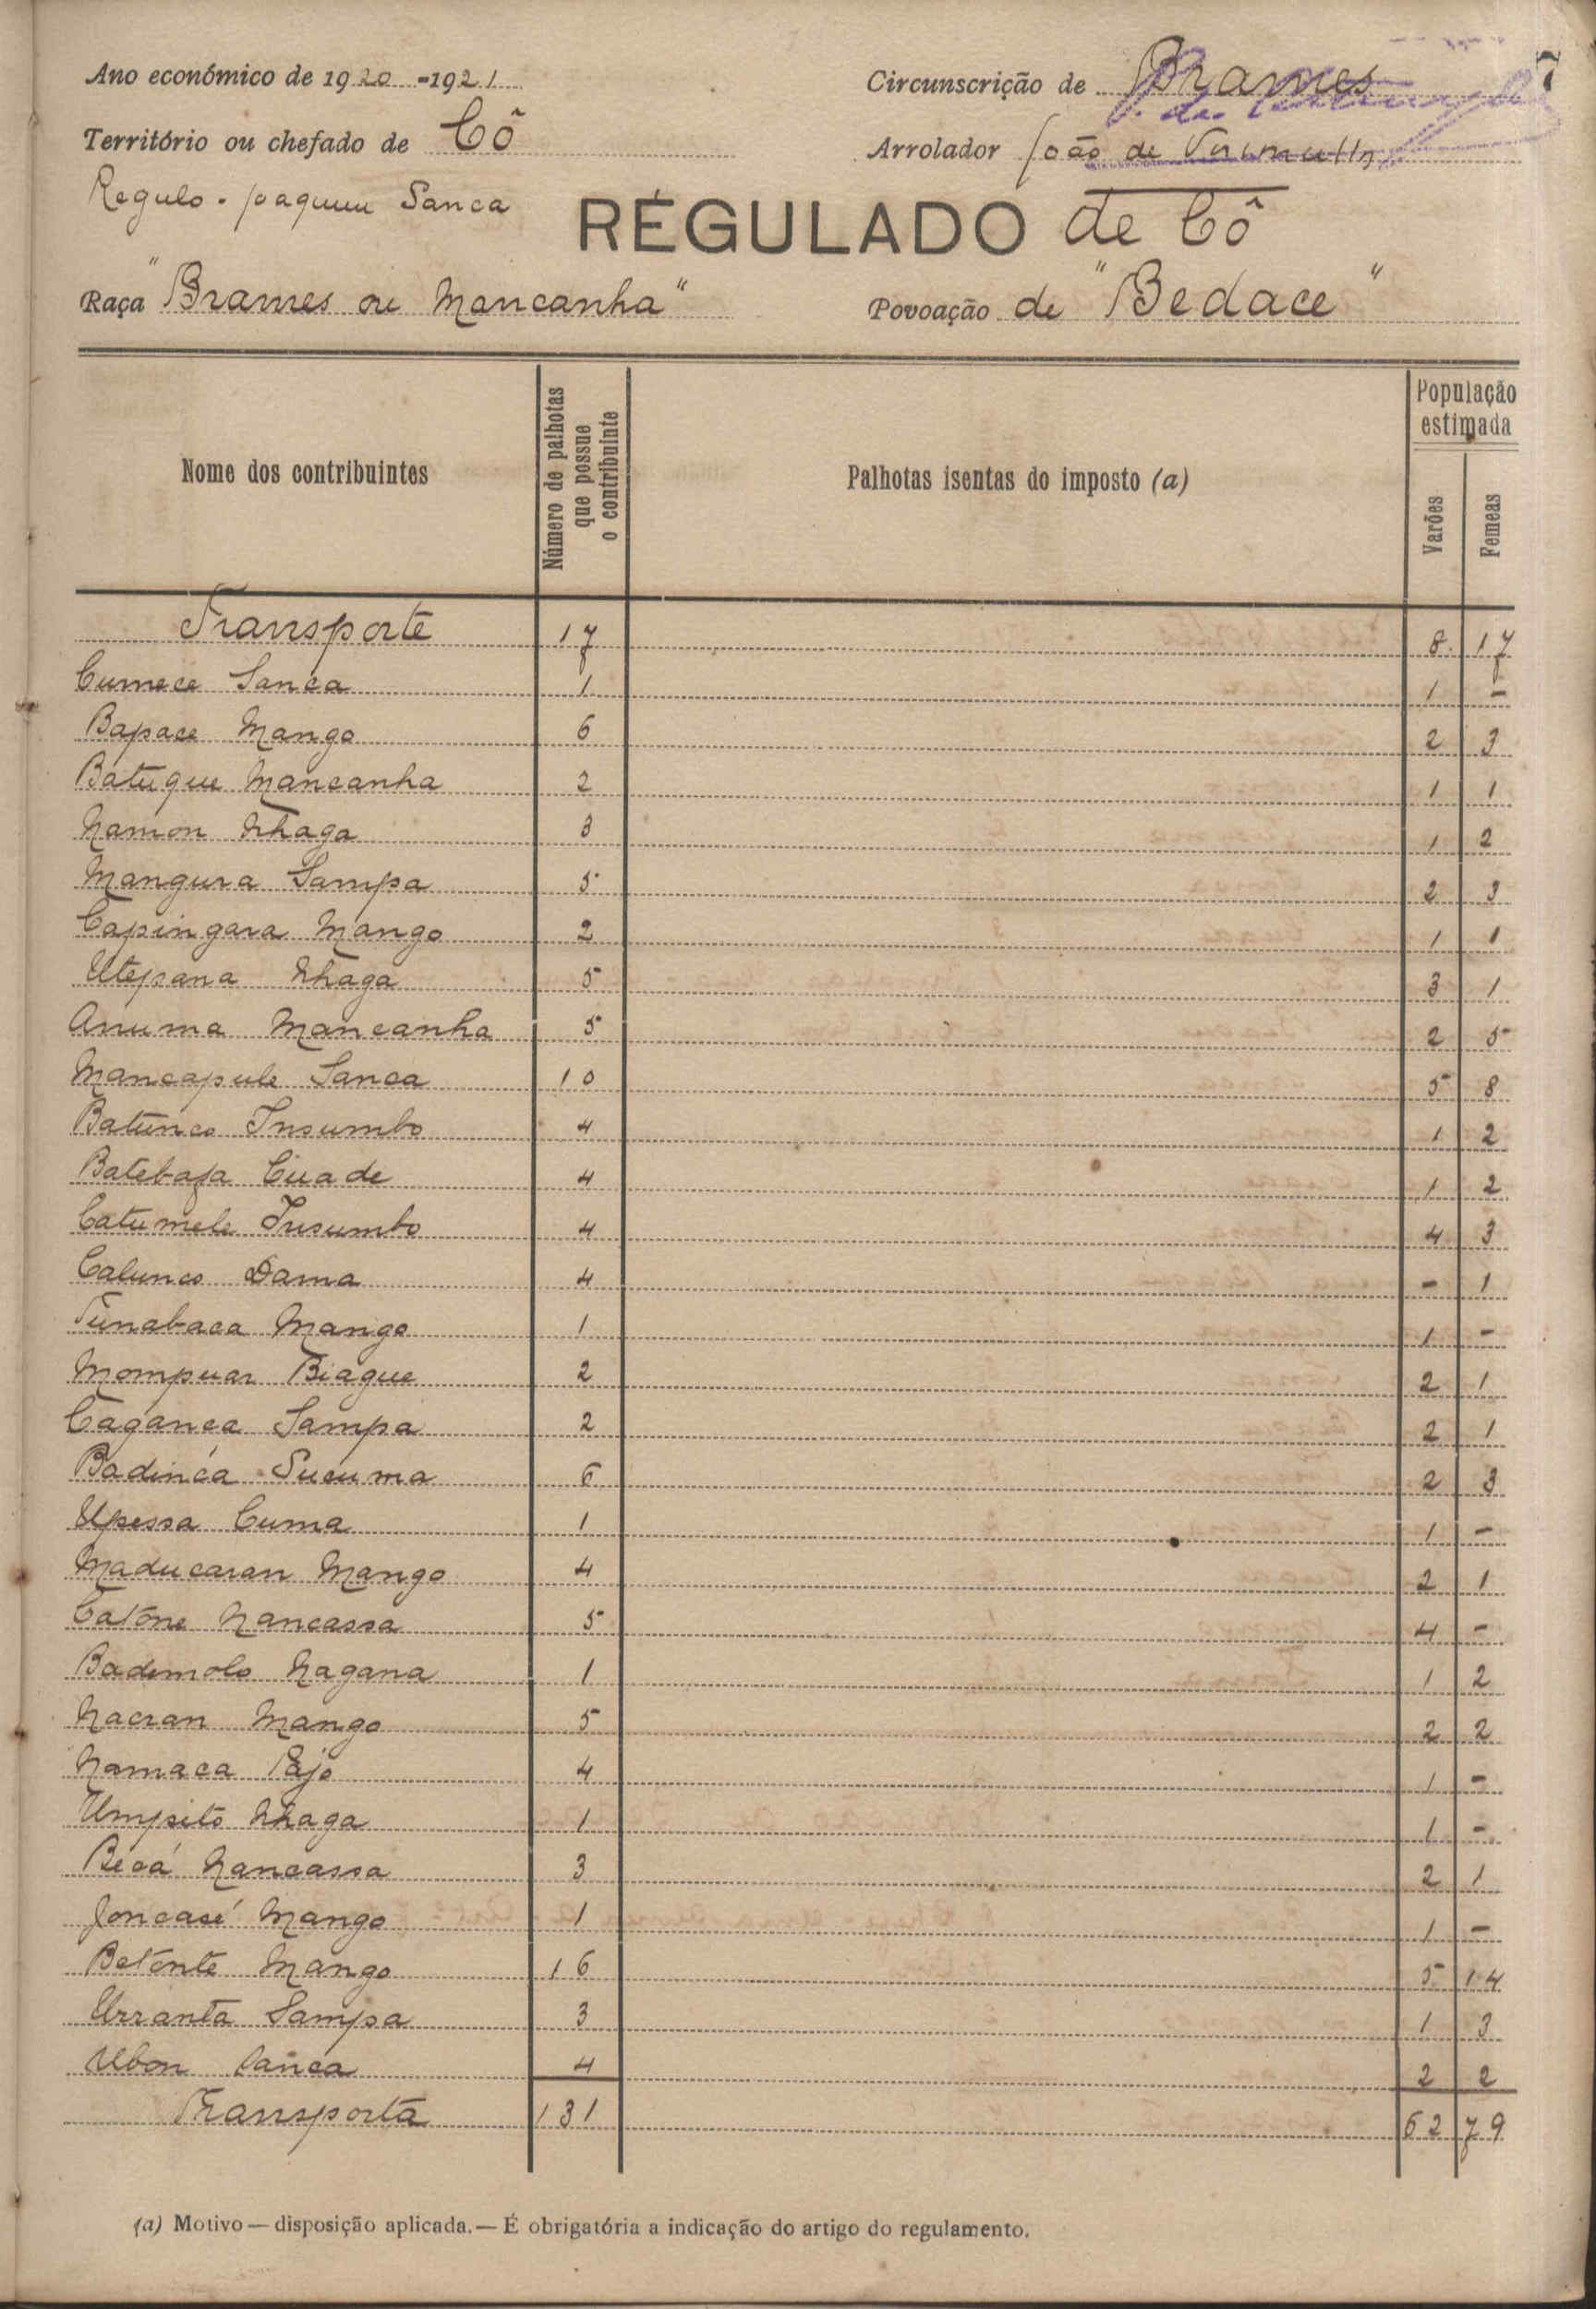 7
Ano económico de 1920-1921 Circunscrição de Brames
Território ou chefado de Cô Arrolador João de
Regulo - Joaquim Sanca
RÉGULADO de Cô
Raça "Brames ou Mancanha" Povoação de "Bedace"
Nome dos contribuintes Número de palhotas que possue o contribuinte Palhotas isentas do imposto (a) População estimada Varões Femeas
Transporte 17 8 17
Cumece Sanca 1 1 -
Bapace Mango 6 2 3
Batuque Mancanha 2 1 1
Namon Nhaga 3 1 2
Mangura Sampa 5 2 3
Capingara Mango 2 1 1
Utepana Nhaga 5 3 1
Anuma Mancanha 5 2 5
Mancapule Sanca 10 5 8
Batunco Insumbo 4 1 2
Batebafa Cuade 4 1 2
Catumele Insumbo 4 4 3
Calunco Dama 4 - 1
Tunabaca Mango 1 1 -
Mompuar Biague 2 2 1
Caganca Sampa 2 2 1
Badinca Sucuma 6 2 3
Upessa Cuma 1 1 -
Maducaran Mango 4 2 1
Catone Nancassa 5 4 -
Bademolo Nagana 1 1 2
Nacran Mango 5 2 2
Namaca Pajo 4 1 -
Umpito Nhaga 1 1 -
Becá Nancassa 3 2 1
Joncasé Mango 1 1 -
Betonte Mango 16 5 14
Urranta Sampa 3 1 3
Ubon Sanca 4 2 2
Transporta 131 62 79
(a) Motivo — disposição aplicada. — É obrigatória a indicação do artigo do regulamento.